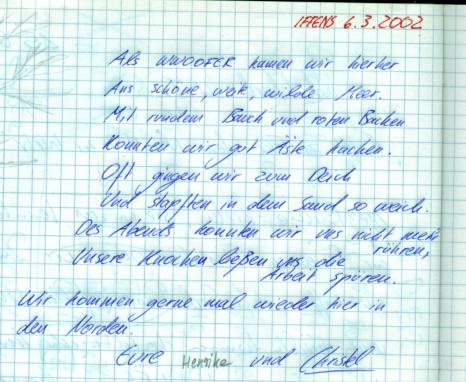 IFFENS 6.3.2002
Als WWOOFER kamen wir hierher
Ans schöne, weite, wilde Meer.
Mit rundem Bauch und roten Backen
Konnten wir gut Äste hacken.
Oft gingen wir zum Deich
Und stapften in dem Sand so weich.
Des Abends konnten wir uns nicht mehr
rühren,
Unsere Knochen ließen uns die
Arbeit spüren.
Wir kommen gerne mal wieder hier in
den Norden.
Eure Henrike und Christel